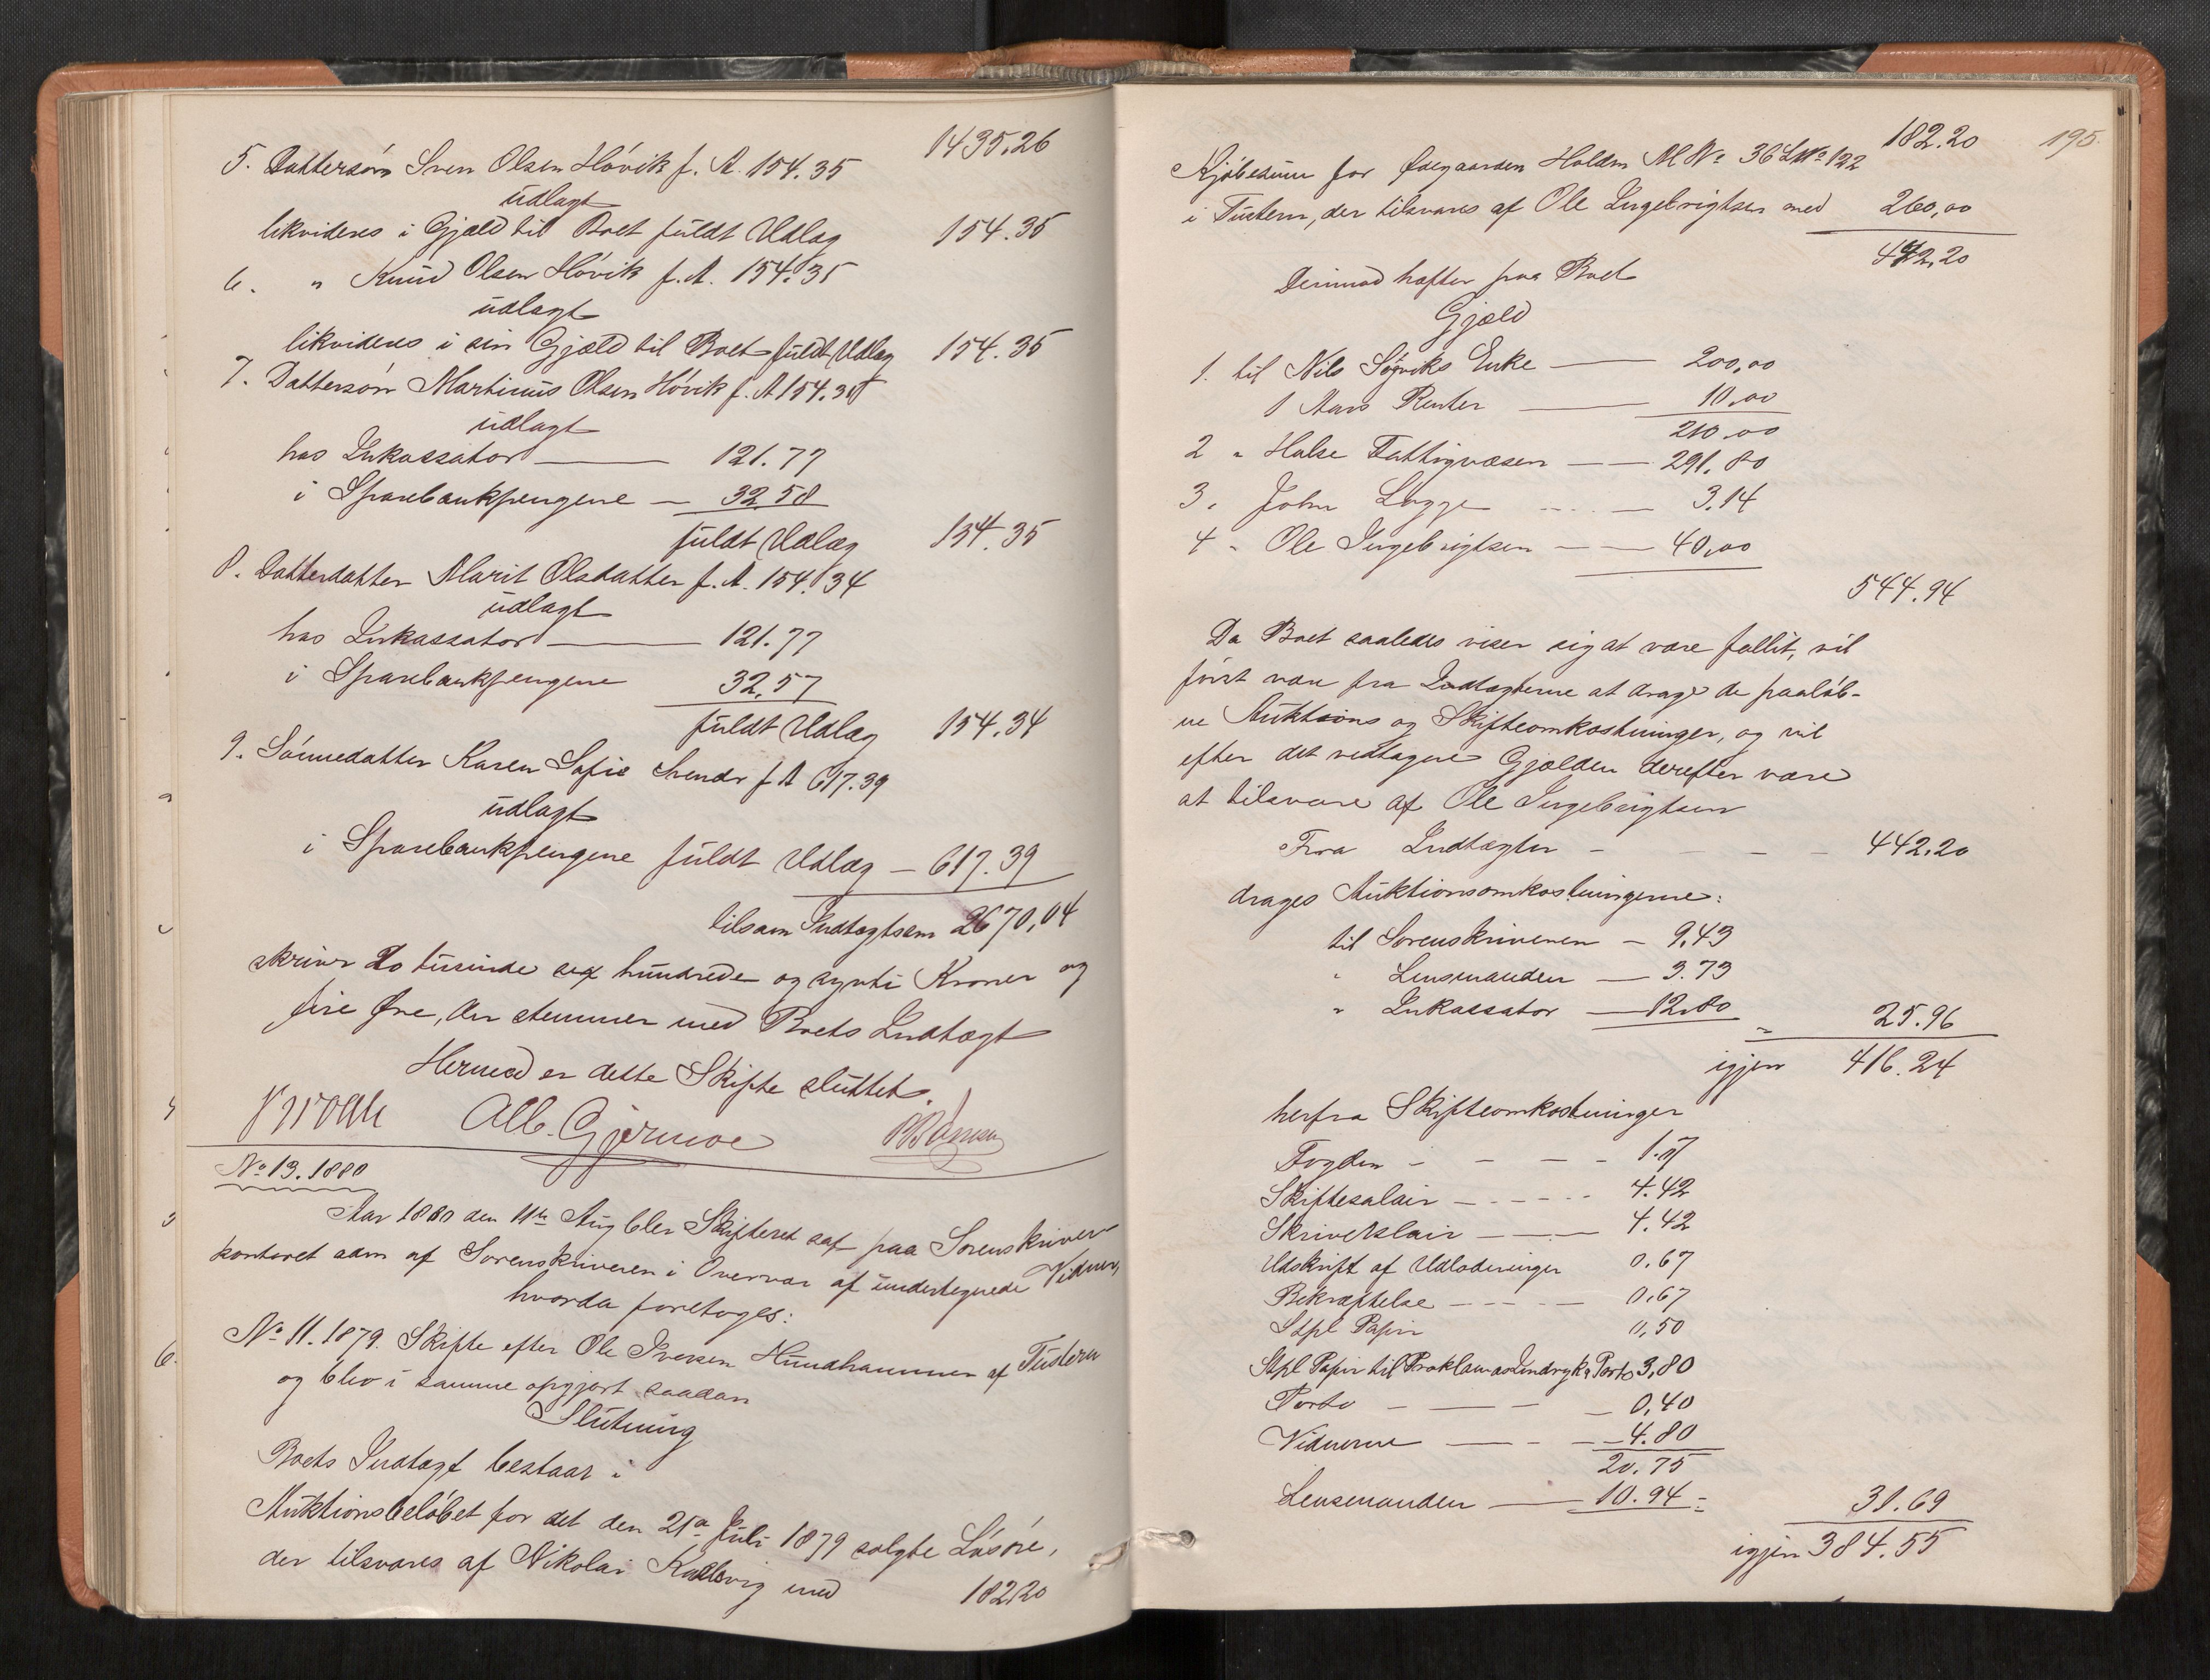 1435.26
5. Dattersøn Sven Olsen Høvik f. A. 154.35
udlagt
likvideres i Gjæld til Boet fuldt Udlæg 154.35
6. " Knud Olsen Høvik f. A. 154.35
udlagt
likvideres i sin Gjæld til Boet fuldt Udlæg 154.35
7. Dattersøn Martinus Olsen Høvik f. A 154.35
udlagt
hos Inkassator — 121.77
i Sparebankpengene — 32.58
fuldt Udlæg 154.35
8. Datterdatter Marit Olsdatter f. A. 154.34
udlagt
hos Inkassator — 121.77
i Sparebankpengene 32.57
fuldt Udlæg 154.34
9. Sønnedatter Karen Sofie Svendr f A 617.39
udlagt
i Sparebankpengene fuldt Udlæg — 617.39
tilsam Indtægtsem 2670,04
skriver To tusinde sex hundrede og sytti Kroner og
fire Øre, der stemmer med Boets Indtægt
Hermed er dette Skifte sluttet.
Alb. Gjørmoe
No 13. 1880
Aar 1880 den 11te Aug blev Skifteret sat paa Sorenskriver
kontoret adm af Sorenskriveren i Overvær af undertegnede Vidner,
hvorda foretoges:
No 11. 1879. Skifte efter Ole Iversen Hundhammer af Tustern
og blev i samme opgjort saadan
Slutning
Boets Indtægt bestaar i
Auktionsbeløbet for det den 21de Juli 1879 solgte Løsøre,
der tilsvares af Nikolai Kallevig med 182.20
195.
182.20
Kjøbesum for Ødegaarden Holden M No 36 L No 122
i Tustern, der tilsvares af Ole Ingebrigtsen med 260,00
442,20
Derimod hæfter paa Boet
Gjæld
1. til Nils Søvviks Enke — 200,00
1 Aars Renter — 10,00
210.00
2 " Halse Fattigvæsen — 291.80
3. John Lagge — 3.14
4 " Ole Ingebrigtsen — 40,00
544.94
Da Boet saaledes viser sig at være fallit, vil
først være fra Indtægterne at drage de paaløb-
ne Auktions og Skifteomkostninger, og vil
efter det vedtagne Gjælden derefter være
at tilsvare af Ole Ingebrigtsen
Fra Indtægten — 442.20
drages Auktionsomkostningerne:
til Sorenskriveren — 9,43
" Lensmanden — 3.73
" Inkassator — 12.80
25.96
igjen 416.24
herfra Skifteomkostninger
Fogden — 1.07
Skiftesalair — 4.42
Skriversalair — 4.42
Udskrift af Udlodninger 0.67
Bekræftelse — 0.67
Stpl Papir 0,50
Stpl Papir til Proklama Indryk & Porto 3,80
Porto — 0,40
Vidnerne — 4.80
20.75
Lensmanden — 10.94
31.69
igjen 384.55